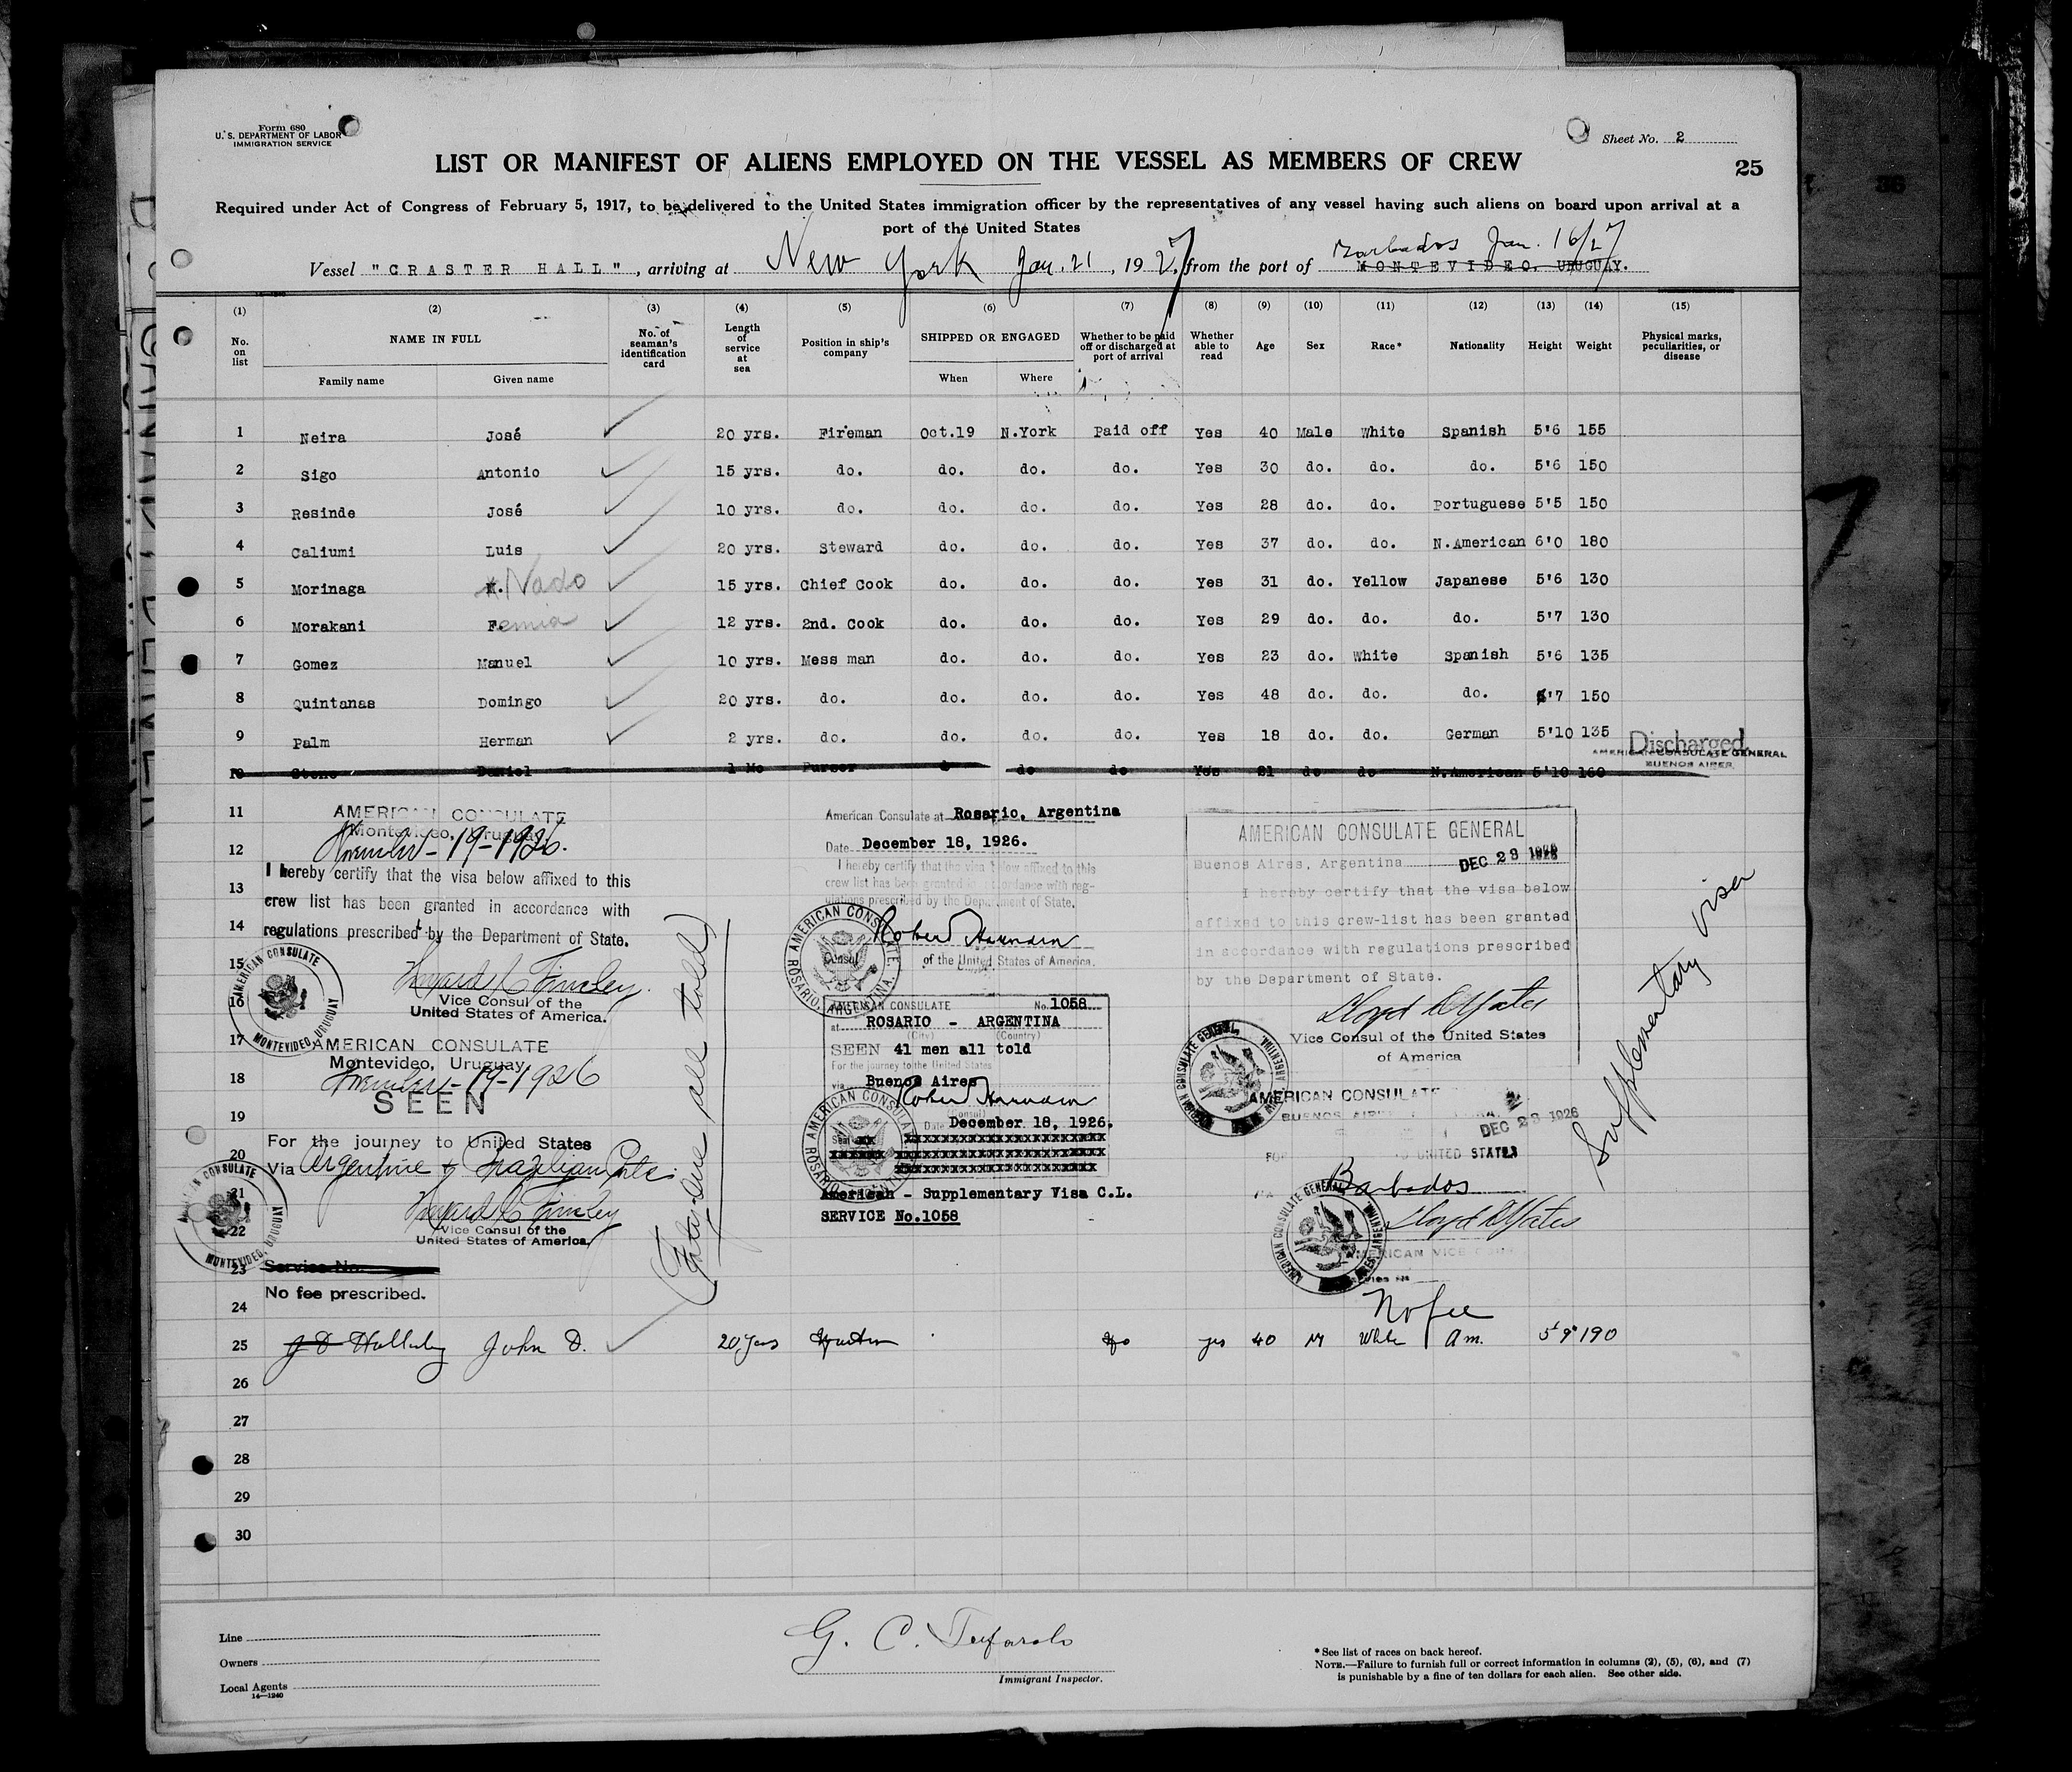 Form 680
U. S. DEPARTMENT OF LABOR
IMMIGRATION SERVICE
Sheet No. 2
LIST OR MANIFEST OF ALIENS EMPLOYED ON THE VESSEL AS MEMBERS OF CREW
25
Required under Act of Congress of February 5, 1917, to be delivered to the United States immigration officer by the representatives of any vessel having such aliens on board upon arrival at a
port of the United States
Barbados Jan. 16/27
Vessel "CRASTER HALL", arriving at New York Jan. 21, 1927, from the port of MONTEVIDEO. URUGUAY.
(1) (2) (3) (4) (5) (6) (7) (8) (9) (10) (11) (12) (13) (14) (15)
No. on list NAME IN FULL No. of seaman's identification card Length of service at sea Position in ship's company SHIPPED OR ENGAGED Whether to be paid off or discharged at port of arrival Whether able to read Age Sex Race* Nationality Height Weight Physical marks, peculiarities, or disease
Family name Given name When Where
1 Neira José 20 yrs. Fireman Oct.19 N.York Paid off Yes 40 Male White Spanish 5'6 155
2 Sigo Antonio 15 yrs. do. do. do. do. Yes 30 do. do. do. 5'6 150
3 Resinde José 10 yrs. do. do. do. do. Yes 28 do. do. Portuguese 5'5 150
4 Caliumi Luis 20 yrs. Steward do. do. do. Yes 37 do. do. N.American 6'0 180
5 Morinaga K. Nado 15 yrs. Chief Cook do. do. do. Yes 31 do. Yellow Japanese 5'6 130
6 Morakani Femia 12 yrs. 2nd. Cook do. do. do. Yes 29 do. do. do. 5'7 130
7 Gomez Manuel 10 yrs. Mess man do. do. do. Yes 23 do. White Spanish 5'6 135
8 Quintanas Domingo 20 yrs. do. do. do. do. Yes 48 do. do. do. 5'7 150
9 Palm Herman 2 yrs. do. do. do. do. Yes 18 do. do. German 5'10 135
Discharged
AMERICAN CONSULATE GENERAL
BUENOS AIRES
10 Stone Daniel 1 Mo Purser do do Yes 21 do do N.American 5'10 160
11
12
13
14
15
16
17
18
19
20
21
22
23
24
AMERICAN CONSULATE
Montevideo, Uruguay
November - 19 - 1926.
I hereby certify that the visa below affixed to this
crew list has been granted in accordance with
regulations prescribed by the Department of State.
Vice Consul of the
United States of America.
AMERICAN CONSULATE
MONTEVIDEO, URUGUAY
AMERICAN CONSULATE
Montevideo, Uruguay
November - 19 - 1926
SEEN
For the journey to United States
Via Argentine & Brazilian Ports.
Vice Consul of the
United States of America.
AMERICAN CONSULATE
MONTEVIDEO, URUGUAY
Service No.
No fee prescribed.
(Forty-one all told)
American Consulate at Rosario, Argentina
Date December 18, 1926.
I hereby certify that the visa below affixed to this
crew list has been granted in accordance with reg-
ulations prescribed by the Department of State.
Consul
of the United States of America.
AMERICAN CONSULATE
ROSARIO, ARGENTINA.
AMERICAN CONSULATE No. 1058
at ROSARIO - ARGENTINA
(City) (Country)
SEEN 41 men all told
For the journey to the United States
via Buenos Aires
(Consul)
Date December 18, 1926.
AMERICAN CONSULATE
ROSARIO, ARGENTINA
American - Supplementary Visa C.L.
SERVICE No.1058
AMERICAN CONSULATE GENERAL
Buenos Aires, Argentina DEC 23 1926
I hereby certify that the visa below
affixed to this crew-list has been granted
in accordance with regulations prescribed
by the Department of State.
Lloyd D Yates
Vice Consul of the United States
of America
AMERICAN CONSULATE GENERAL,
AMERICAN CONSULATE
BUENOS AIRES
DEC 23 1926
UNITED STATES
Barbados
Lloyd D Yates
AMERICAN VICE CONSUL
AMERICAN CONSULATE GENERAL
No fee
Supplementary visa
25 John D. 20 yrs yes 40 M White Am. 5'9" 190
26
27
28
29
30
Line
Owners
Local Agents
14—1240
Immigrant Inspector.
*See list of races on back hereof.
NOTE.—Failure to furnish full or correct information in columns (2), (5), (6), and (7)
is punishable by a fine of ten dollars for each alien. See other side.